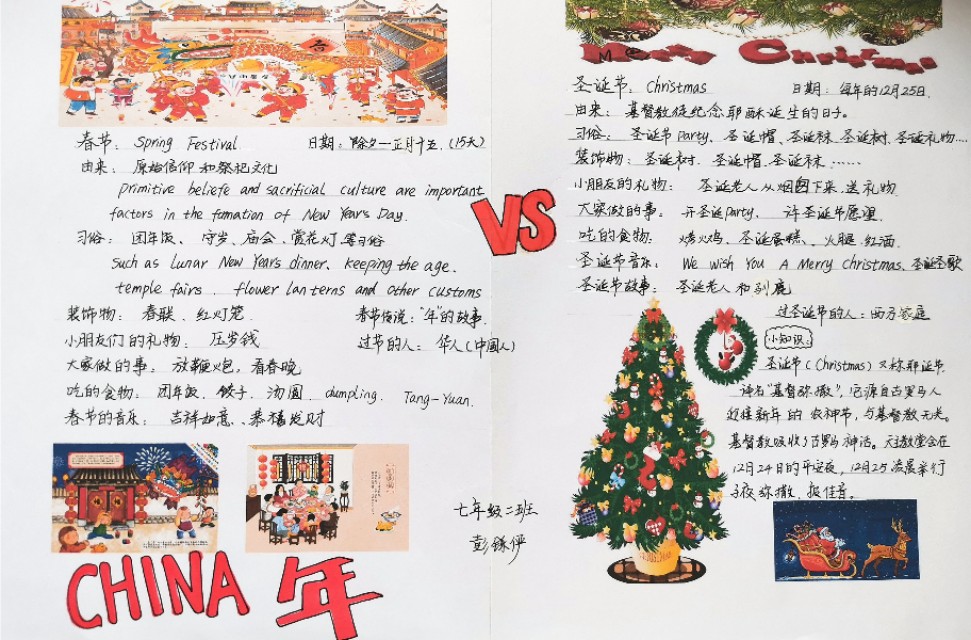 春节: Spring Festival. 日期: 除夕—正月十五.(15天)
由来: 原始信仰和祭祀文化
primitive beliefe and sacrificial culture are important
factors in the fomation of New Year's Day.
习俗: 团年饭、守岁、庙会、赏花灯等习俗
such as Lunar New Year's dinner、keeping the age、
temple fairs、flower lanterns and other customs
装饰物: 春联、红灯笼. 春节传说: "年"的故事.
小朋友们的礼物: 压岁钱 过节的人: 华人(中国人)
大家做的事: 放鞭火炮, 看春晚
吃的食物: 团年饭、饺子、汤圆、dumpling、Tang-Yuan.
春节的音乐: 吉祥如意、恭禧发财
CHINA 年
VS
七年级二班
Merry Christmas
圣诞节: Christmas 日期: 每年的12月25日.
由来: 基督教徒纪念耶稣诞生的日子.
习俗: 圣诞节Party、圣诞帽、圣诞袜、圣诞树、圣诞礼物....
装饰物: 圣诞树、圣诞帽、圣诞袜、......
小朋友的礼物: 圣诞老人从烟囱下来送礼物
大家做的事: 开圣诞party、许圣诞年愿望
吃的食物: 烤火鸡、圣诞蛋糕、火腿、红酒.
圣诞节音乐: We Wish You A Merry Christmas、圣诞圣歌
圣诞节故事: 圣诞老人和驯鹿
过圣诞节的人: 西方家庭
小知识:
圣诞节(Christmas)又称耶诞节.
译名"基督弥撒", 它源自古罗马人
迎接新年的农神节, 与基督教无关.
基督教吸收了古罗马神话。天主教堂会在
12月24日的平安夜, 12月25凌晨举行
子夜弥撒、报佳音。